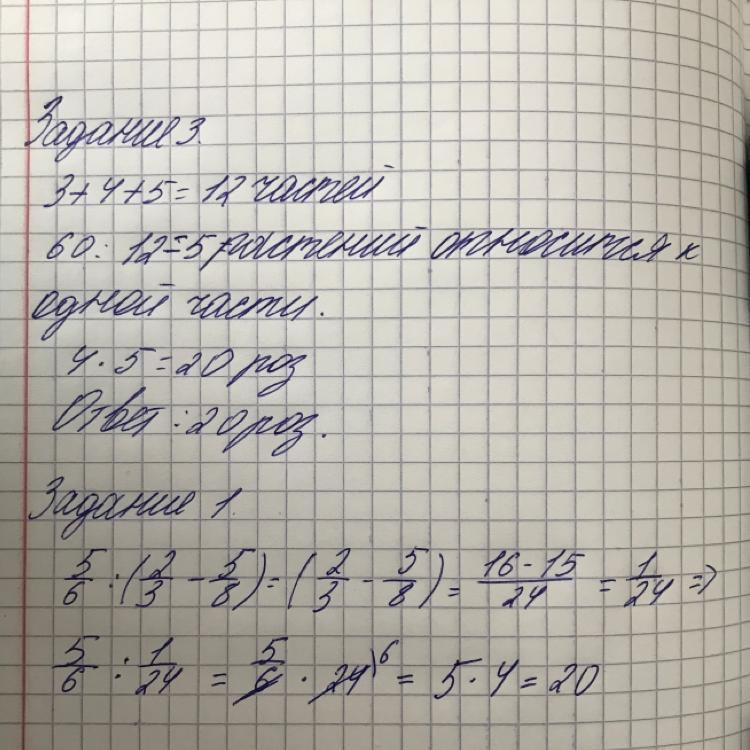 Задание 3.
3+4+5=12 частей
60:12=5 растений относится к
одной части.
4·5=20 роз
Ответ: 20 роз.
Задание 1.
5/6 : (2/3 - 5/8) = (2/3 - 5/8) = 16-15/24 = 1/24 =>
5/6 : 1/24 = 5/6 · 24)6 = 5·4=20